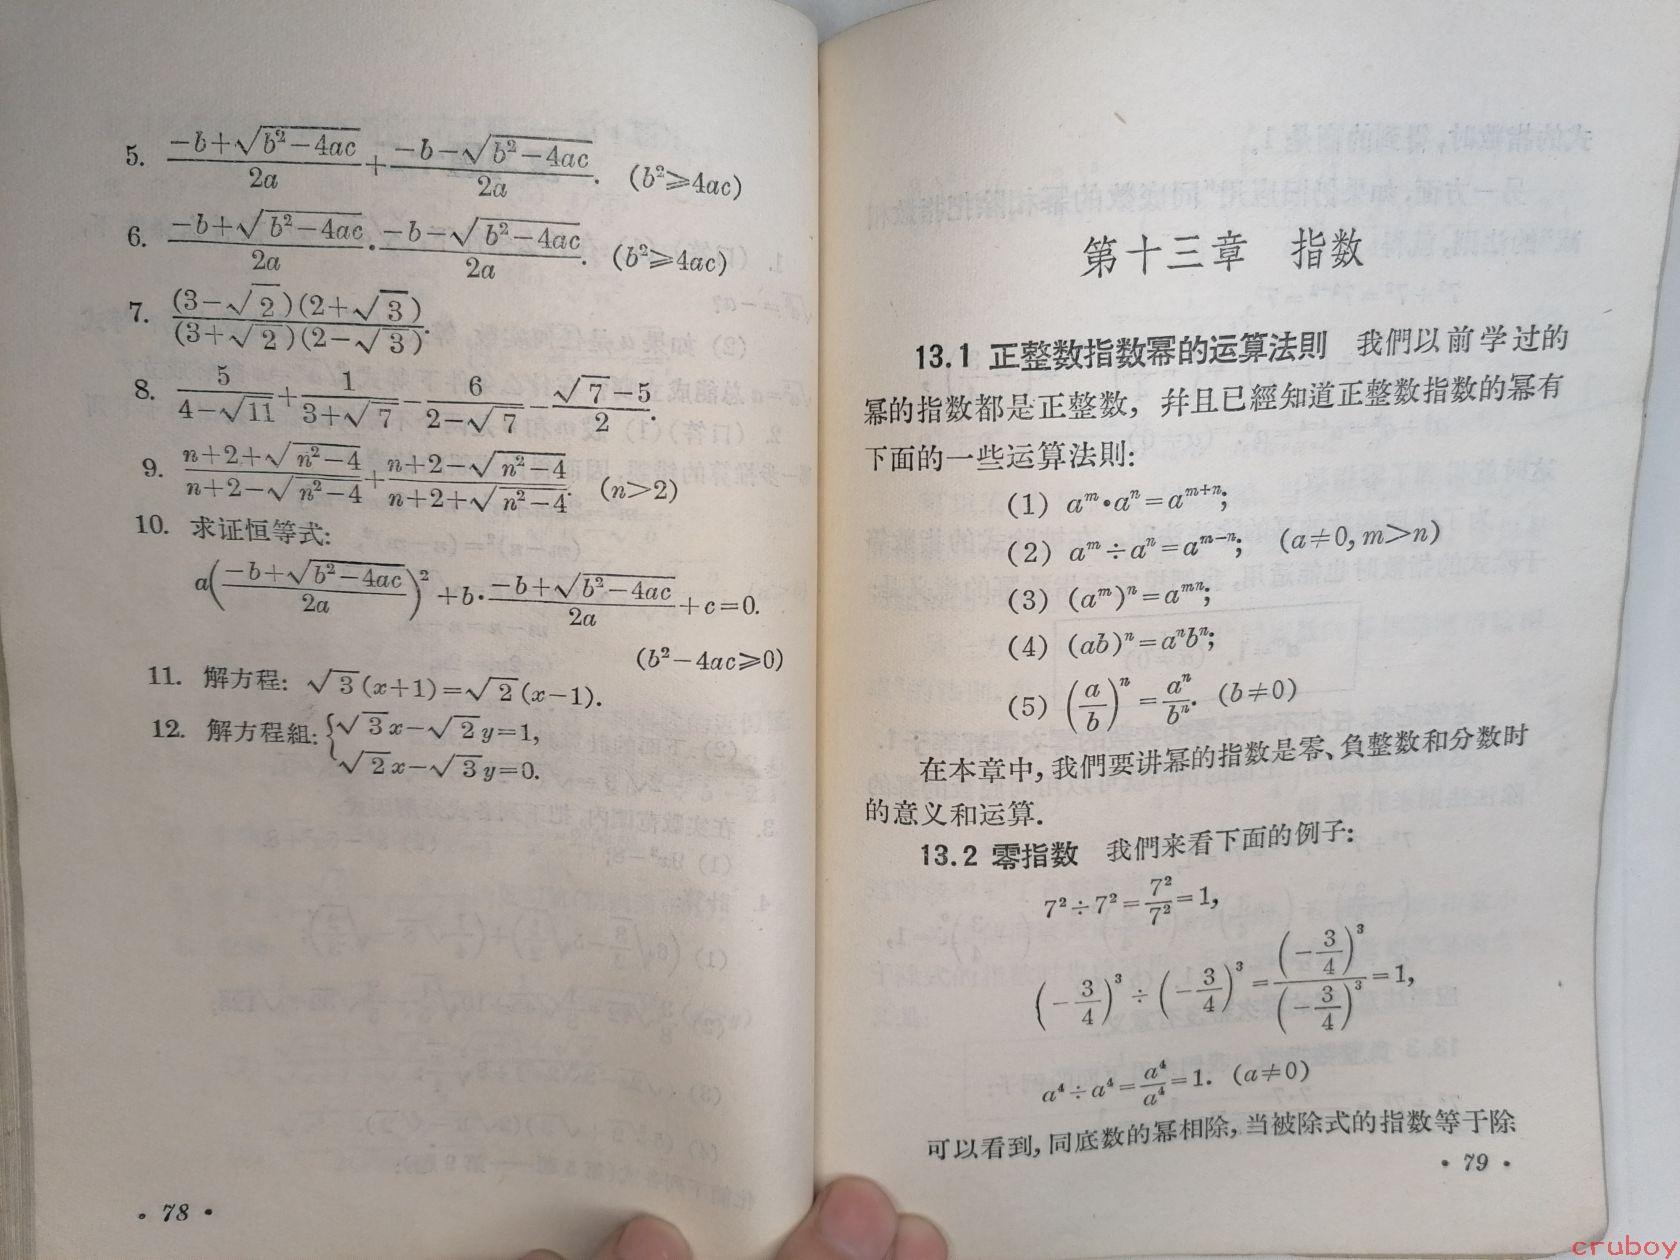 5. (-b+√(b²-4ac))/(2a) + (-b-√(b²-4ac))/(2a). (b²⩾4ac)
6. (-b+√(b²-4ac))/(2a) · (-b-√(b²-4ac))/(2a). (b²⩾4ac)
7. ((3-√2)(2+√3))/((3+√2)(2-√3)).
8. 5/(4-√11) + 1/(3+√7) - 6/(2-√7) - (√7-5)/2.
9. (n+2+√(n²-4))/(n+2-√(n²-4)) + (n+2-√(n²-4))/(n+2+√(n²-4)). (n>2)
10. 求证恒等式:
a((-b+√(b²-4ac))/(2a))² + b·(-b+√(b²-4ac))/(2a) + c=0.
(b²-4ac⩾0)
11. 解方程: √3(x+1)=√2(x-1).
12. 解方程組: {√3x-√2y=1,
√2x-√3y=0.
· 78 ·
第十三章 指数
13.1 正整数指数幂的运算法則 我們以前学过的
幂的指数都是正整数, 幷且已經知道正整数指数的幂有
下面的一些运算法則:
(1) aᵐ·aⁿ=aᵐ⁺ⁿ;
(2) aᵐ÷aⁿ=aᵐ⁻ⁿ; (a≠0, m>n)
(3) (aᵐ)ⁿ=aᵐⁿ;
(4) (ab)ⁿ=aⁿbⁿ;
(5) (a/b)ⁿ=aⁿ/bⁿ. (b≠0)
在本章中, 我們要讲幂的指数是零、負整数和分数时
的意义和运算.
13.2 零指数 我們来看下面的例子:
7²÷7²=7²/7²=1,
(-3/4)³÷(-3/4)³=(-3/4)³/(-3/4)³=1,
a⁴÷a⁴=a⁴/a⁴=1. (a≠0)
可以看到, 同底数的幂相除, 当被除式的指数等于除
· 79 ·
cruboy